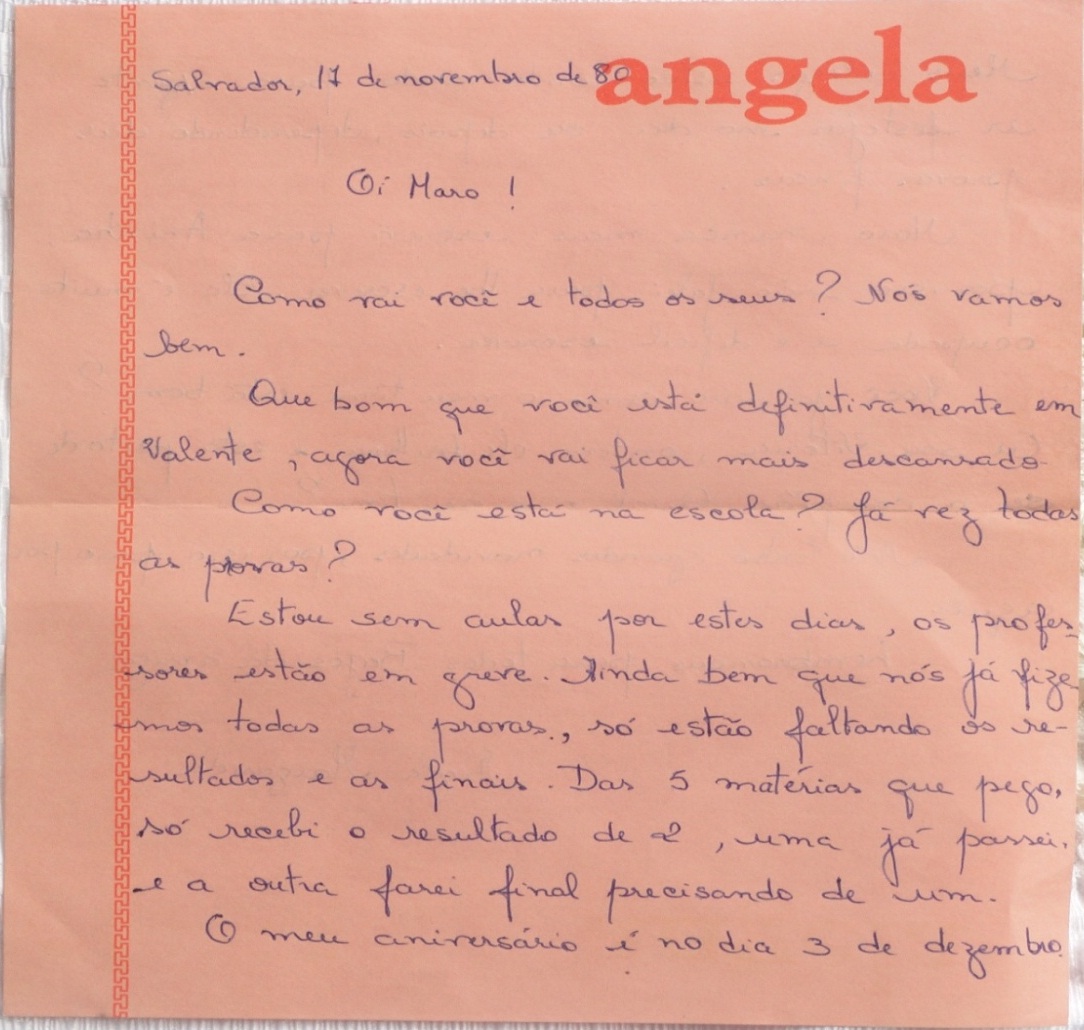 angela
Salvador, 17 de novembro de 80
Oi Maro !
Como vai você e todos os seus ? Nós vamos
bem.
Que bom que você está definitivamente em
Valente , agora você vai ficar mais descansado
Como você está na escola ? Já vez todas
as provas ?
Estou sem aulas por estes dias , os profes-
sores estão em greve. Ainda bem que nós já fize
mos todas as provas., só estão faltando os re-
sultados e as finais. Das 5 matérias que pego,
só recebi o resultado de 2 , uma já passei,
e a outra farei final precisando de um.
O meu aniversário é no dia 3 de dezembro.